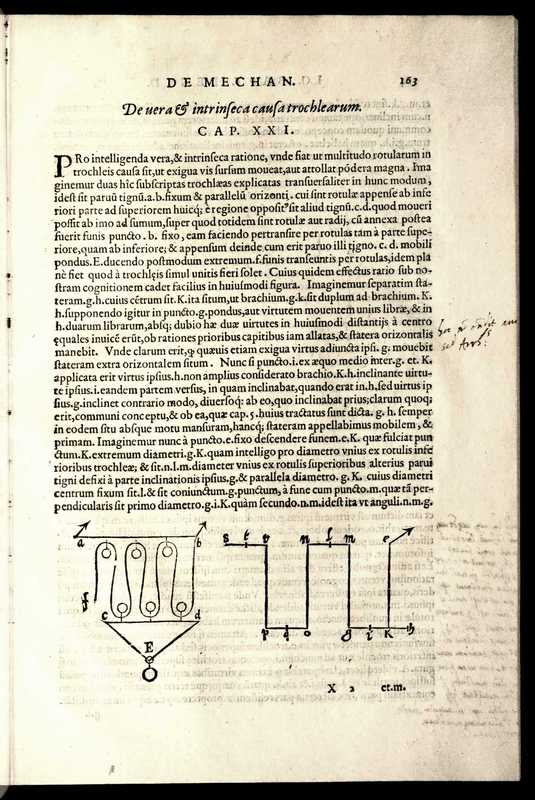 DE MECHAN. 163
De vera & intrinseca causa trochlearum.
CAP. XXI.
PRo intelligenda vera, & intrinseca ratione, vnde fiat ut multitudo rotularum in
trochleis causa sit, ut exigua vis sursum moueat, aut attollat põdera magna. Ima
ginemur duas hîc subscriptas trochlæas explicatas transuersaliter in hunc modum,
idest sit paruũ tignũ.a.b.fixum & parallelũ orizonti. cui sint rotulæ appensæ ab infe
riori parte ad superiorem huicq; è regione opposit' sit aliud tignũ.c.d.quod moueri
possit ab imo ad summum, super quod totidem sint rotulæ aut radij, cũ annexa postea
fuerit funis puncto .b. fixo, eam faciendo pertransire per rotulas tam à parte supe-
riore, quam ab inferiore; & appensum deinde cum erit paruo illi tigno. c. d. mobili
pondus.E.ducendo postmodum extremum.f.funis transeuntis per rotulas, idem pla
nè fiet quod à trochleis simul unitis fieri solet. Cuius quidem effectus ratio sub no-
stram cognitionem cadet facilius in huiusmodi figura. Imaginemur separatim sta-
teram.g.h.cuius cẽtrum sit.K.ita situm, ut brachium.g.k.sit duplum ad brachium. K.
h.supponendo igitur in puncto.g.pondus, aut virtutem mouentem unius libræ, & in
h.duarum librarum, absq; dubio hæ duæ uirtutes in huiusmodi distantijs à centro
ęquales inuicẽ erũt, ob rationes prioribus capitibus iam allatas, & statera orizontalis
manebit. Vnde clarum erit, q̃ quæuis etiam exigua virtus adiuncta ipsi. g. mouebit
stateram extra orizontalem situm. Nunc si puncto.i.ex æquo medio inter.g. et. K.
applicata erit virtus ipsius.h.non amplius considerato brachio.K.h.inclinante uirtu-
te ipsius.i.eandem partem versus, in quam inclinabat, quando erat in.h.sed uirtus ip
sius.g.inclinet contrario modo, diuersoq; ab eo, quo inclinabat prius; clarum quoq;
erit, communi conceptu, & ob ea, quæ cap.5.huius tractatus sunt dicta. g. h. semper
in eodem situ absque motu mansuram, hancq; stateram appellabimus mobilem, &
primam. Imaginemur nunc à puncto.e.fixo descendere funem.e.K. quæ fulciat pun
ctum.K.extremum diametri.g.K.quam intelligo pro diametro vnius ex rotulis infe
rioribus trochleæ; & sit.n.l.m.diameter vnius ex rotulis superioribus alterius parui
tigni defixi à parte inclinationis ipsius.g.& parallela diametro. g. K. cuius diametri
centrum fixum sit.l.& sit coniunctum.g.punctum, à fune cum puncto.m.quæ tã per-
pendicularis sit primo diametro.g.i.K.quàm secundo.n.m.idest ita vt anguli.n.m.g.
a b
f
c d
E
s t v n l m e
p q o g i K h
X 2 et.m.